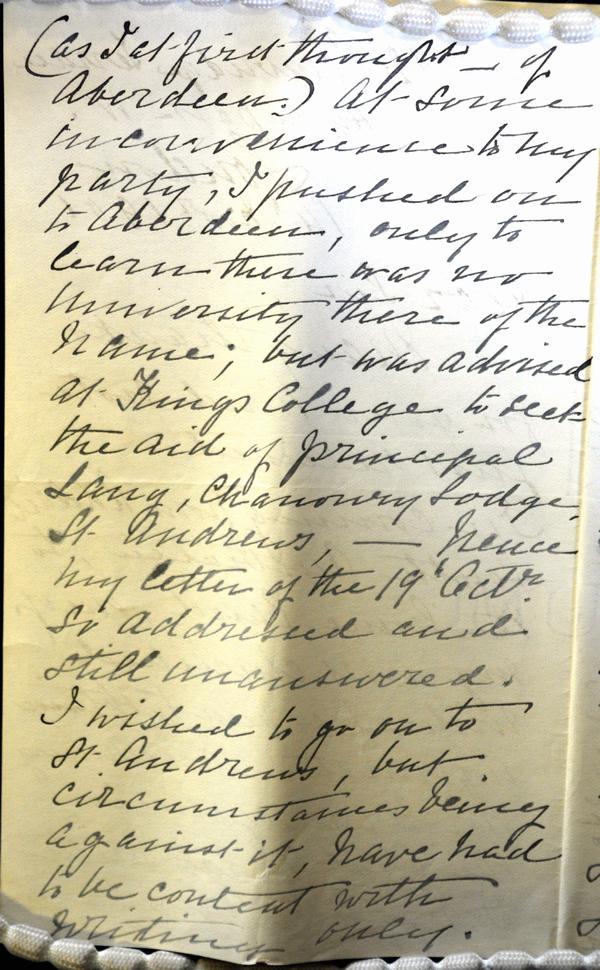 (as I at first thought — of
Aberdeen.) At some
inconvenience to my
party, I pushed on
to Aberdeen, only to
learn there was no
University there of the
name; but was advised
at Kings College to seek
the aid of principal
Lang, Chanonry Lodge,
St. Andrews, — hence
my letter of the 19th Octr.
so addressed and
still unanswered.
I wished to go on to
St. Andrews, but
circumstances being
against it, have had
to be content with
writing only.